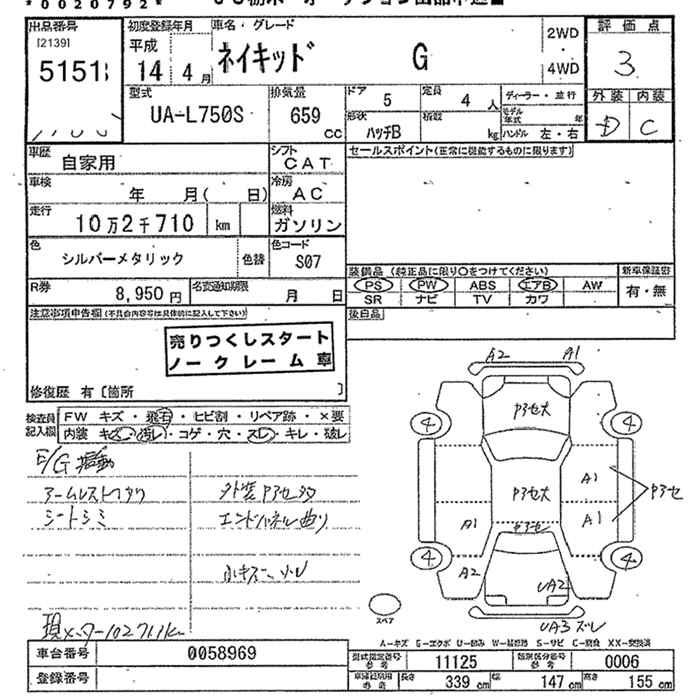 *0020792*
出品番号 初度登録年月 車名・グレード 2WD 評価点
[2139] 平成 ネイキッド G
5151 14 4月 4WD 3
型式 排気量 ドア 5 定員 4人 ディーラー・並行 外装 内装
UA-L750S 659 cc 形状 ハッチB 積載 kg モデル年式 年 D C
ハンドル 左・右
車歴 自家用 シフト CAT セールスポイント(正常に機能するものに限ります)
車検 年 月( 日) 冷房 AC
走行 10万2千710 km 燃料 ガソリン
色 シルバーメタリック 色替 色コード S07
装備品 (純正品に限り○をつけてください) 新車保証書
R券 8,950円 名変通知期限 月 日 PS PW ABS エアB AW 有・無
SR ナビ TV カワ
注意事項申告欄(不具合内容等は具体的に記入して下さい) 後日品
売りつくしスタート
ノークレーム車
修復歴 有〔箇所 〕
検査員 FW キズ・飛石・ヒビ割・リペア跡・×要
記入欄 内装 キズ・汚レ・コゲ・穴・スレ・キレ・破レ
A2 A1
4 P3セ大 4
E/G
シートシミ エンドパネル曲り
A1 P3セ大 A1 P3セ
A1
P3セ
4 A2 UA2 4
スペア
UA3 ズレ
A-キズ G-エクボ U-凹み W-補修跡 S-サビ C-腐食 XX-交換済
車台番号 0058969 型式指定番号 参考 11125 類別区分番号 参考 0006
登録番号 長さ 339cm 幅 147cm 高さ 155cm